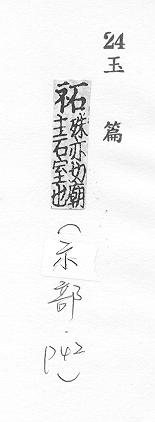 24 玉篇
祏 殊亦切廟
主石室也
（示部．P42）